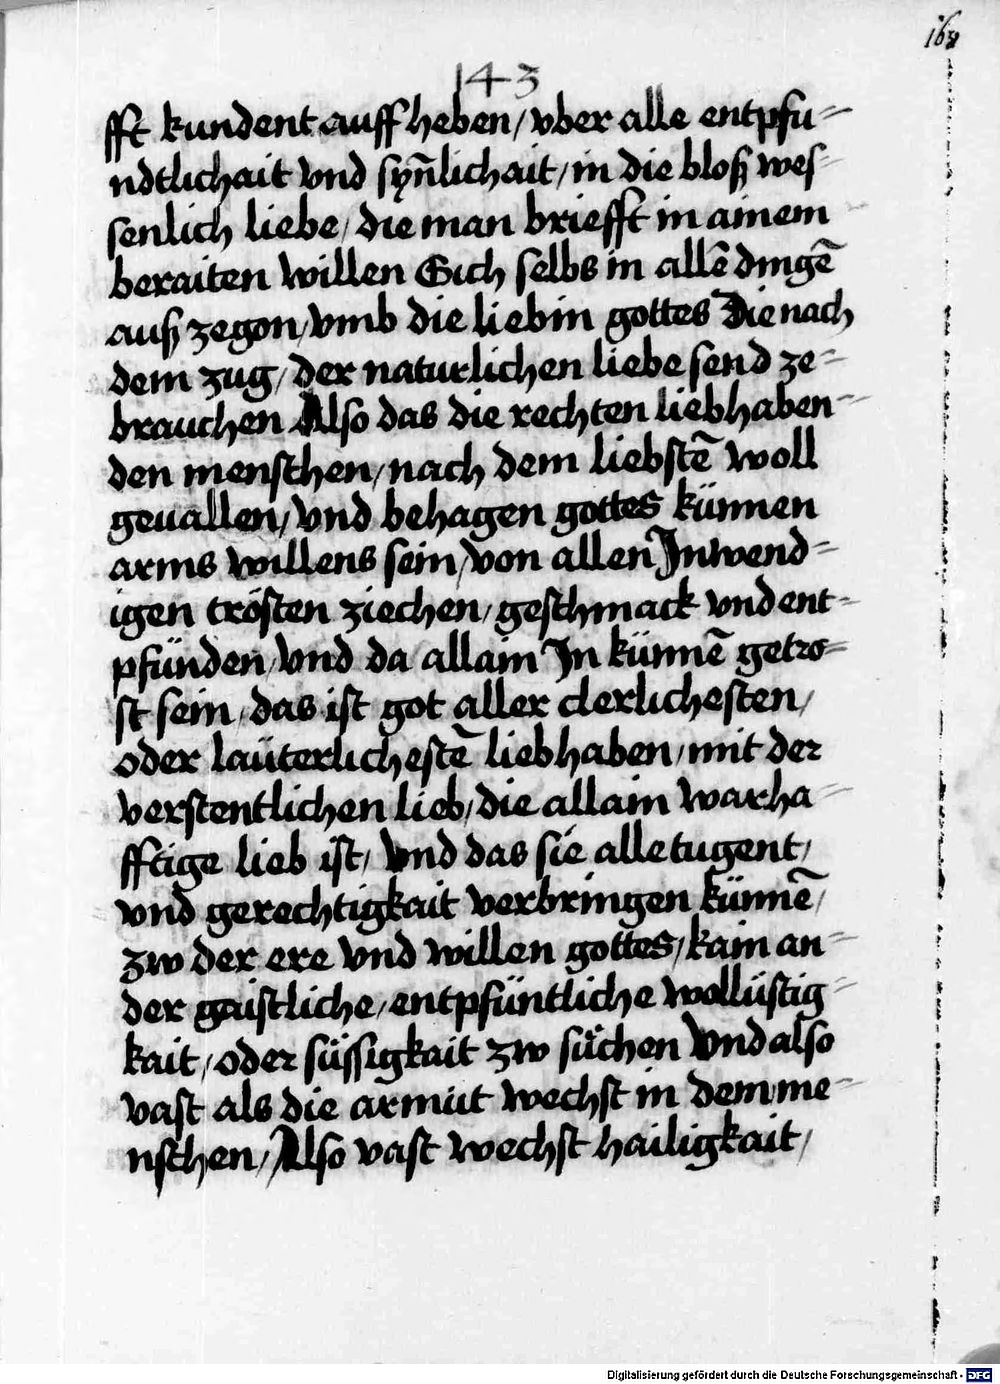 143
fft kundent auff heben / vber alle entpfu=
ndtlichait vnd syñlichait / in die bloß wes=
senlich liebe / die man briefft in ainem
beraiten willen Sich selbs in allē dingē
auß zegon / vmb die liebin gottes Die nach
dem zug / der naturlichen liebe send ze=
brauchen Also das die rechten liebhaben=
den menschen / nach dem liebstē woll
geuallen / vnd behagen gottes künnen
arms willens sein / von allen Inwend=
igen trösten ziechen / geschmack vnd ent=
pfünden / vnd da allain In künnē getro=
st sein / das ist got aller clerlichesten /
oder lauterlichestē liebhaben / mit der
verstentlichen lieb / die allain warha=
fftige lieb ist / vnd das sie alle tugent /
vnd gerechtigkait verbringen künnē /
zw der ere vnd willen gottes / kain an=
der gaistliche / entpfüntliche wollüstig=
kait / oder süssigkait zw süchen Vnd also
vast als die armüt wechst in dem me=
nschen / Also vast wechst hailigkait /
Digitalisierung gefördert durch die Deutsche Forschungsgemeinschaft - DFG